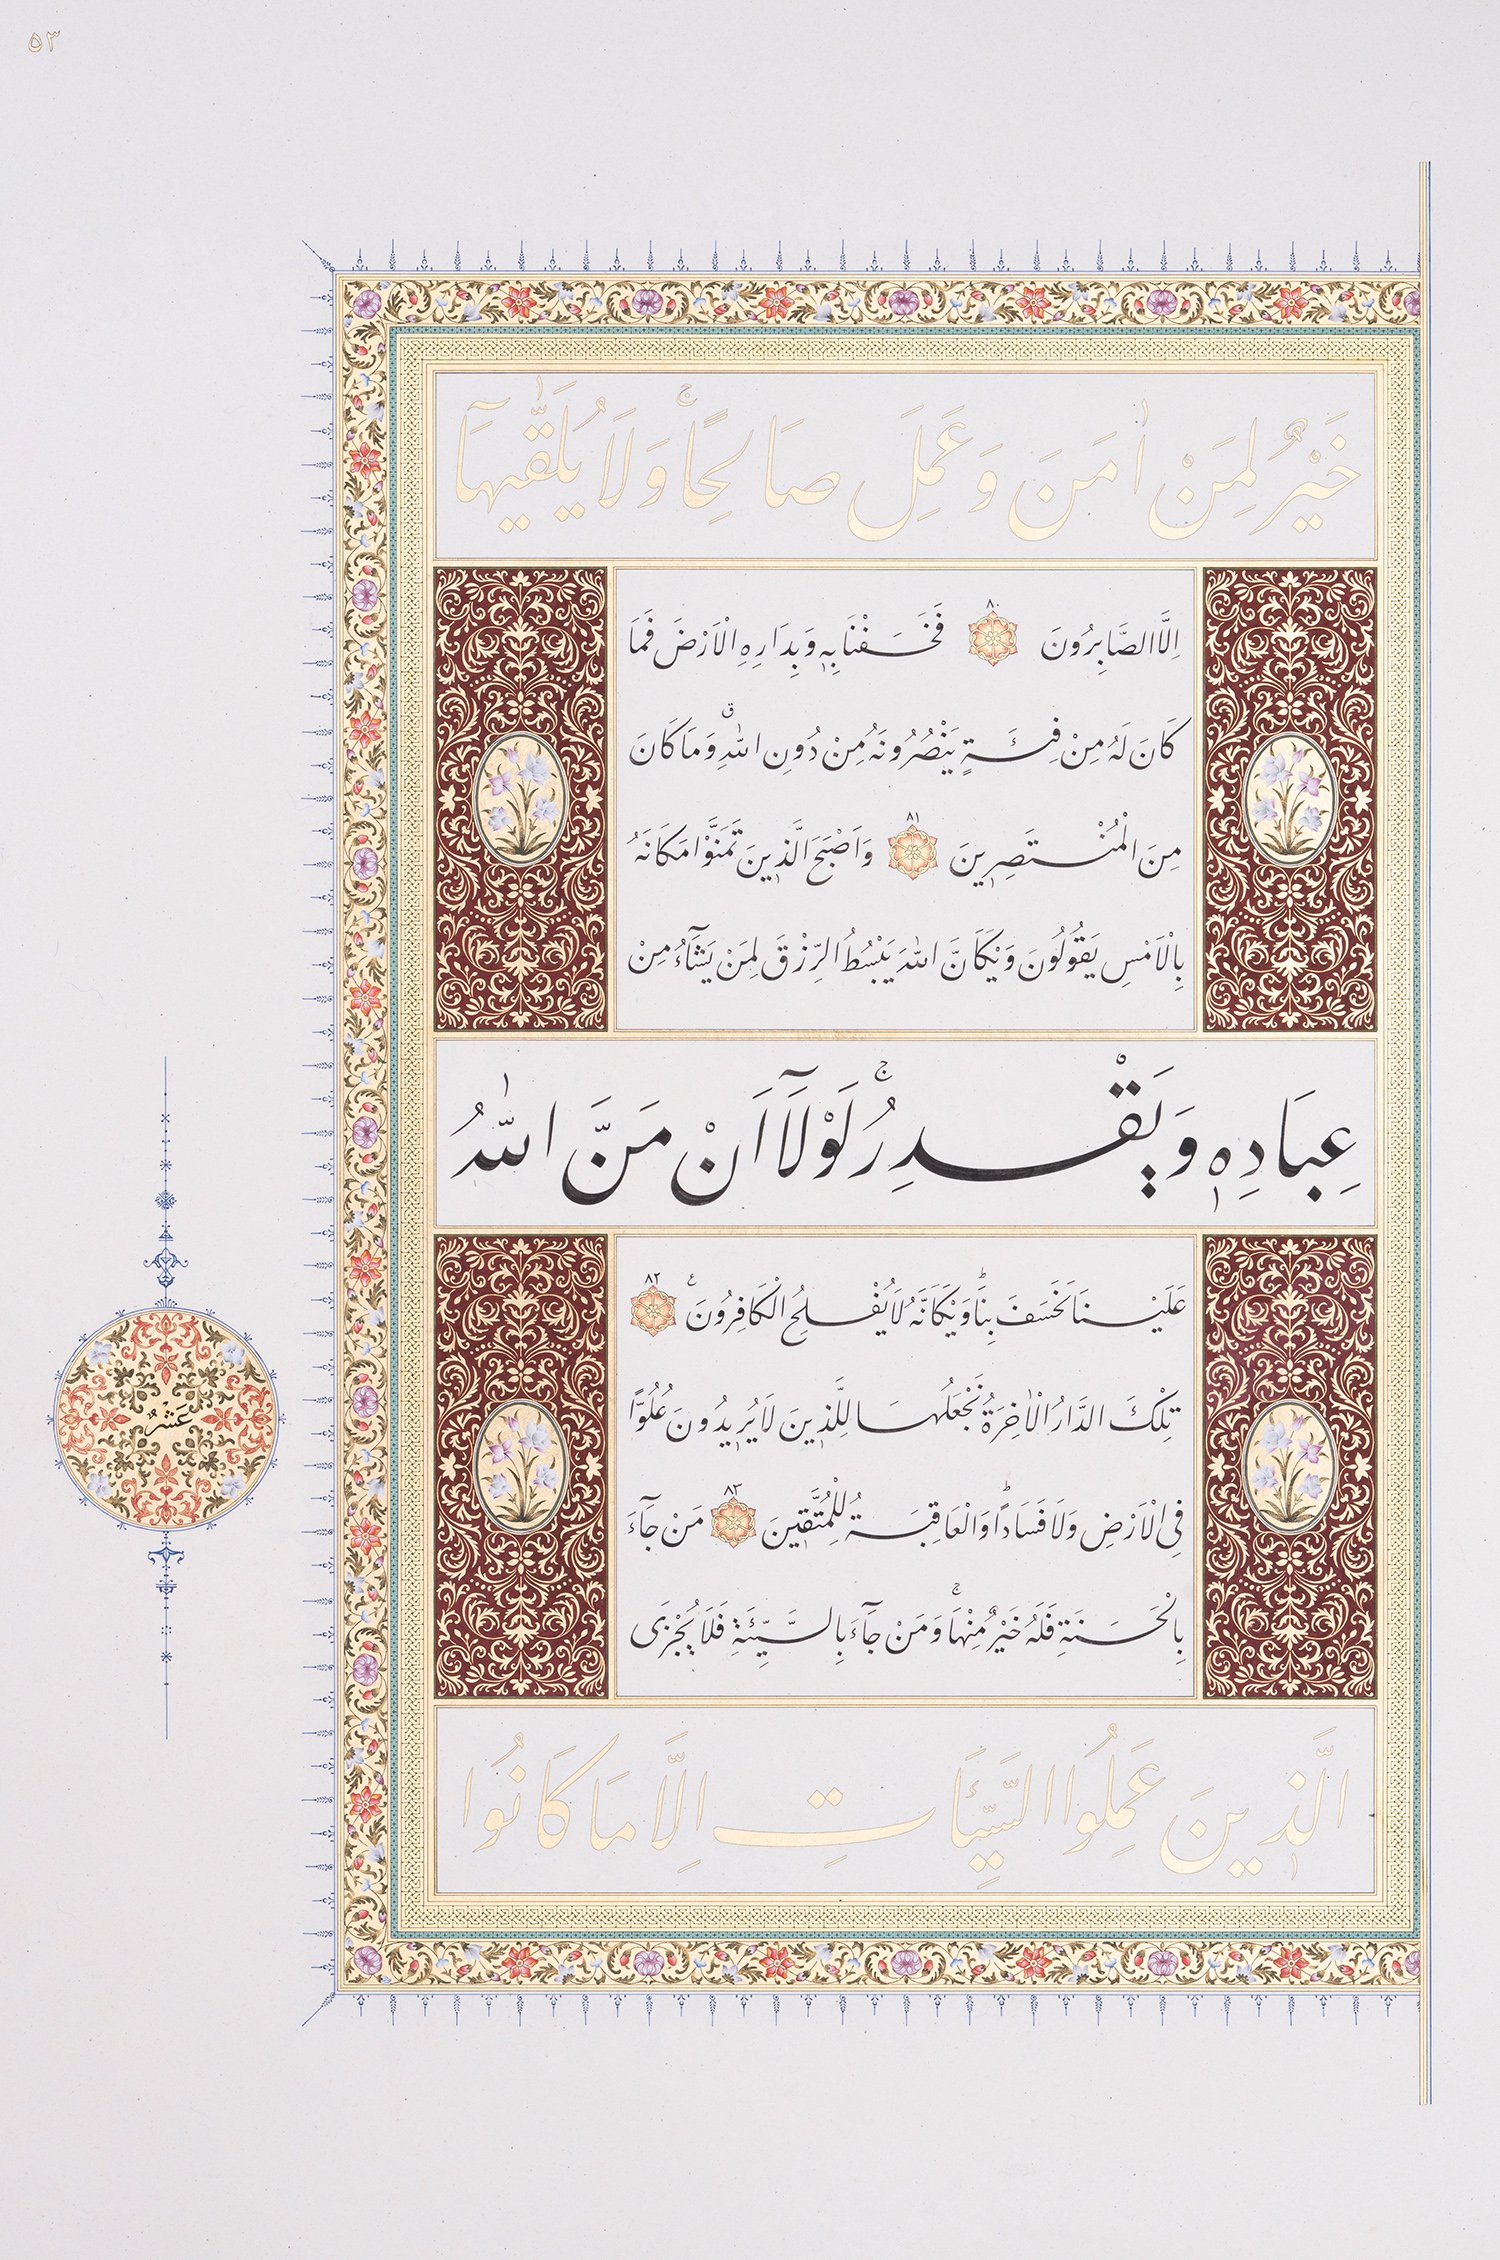 ٥٣
خَيْرٌ لِمَنْ اٰمَنَ وَعَمِلَ صَالِحًاۚ وَلَا يُلَقّٰيهَٓا
٨٠
اِلَّا الصَّابِرُونَ فَخَسَفْنَا بِهٖ وَبِدَارِهِ الْاَرْضَ فَمَا
كَانَ لَهُ مِنْ فِئَةٍ يَنْصُرُونَهُ مِنْ دُونِ اللّٰهِۗ وَمَا كَانَ
٨١
مِنَ الْمُنْتَصِرٖينَ وَاَصْبَحَ الَّذٖينَ تَمَنَّوْا مَكَانَهُ
بِالْاَمْسِ يَقُولُونَ وَيْكَاَنَّ اللّٰهَ يَبْسُطُ الرِّزْقَ لِمَنْ يَشَٓاءُ مِنْ
عِبَادِهٖ وَيَقْدِرُۚ لَوْلَٓا اَنْ مَنَّ اللّٰهُ
٨٢
عَلَيْنَا لَخَسَفَ بِنَاۜ وَيْكَاَنَّهُ لَا يُفْلِحُ الْكَافِرُونَ ع
تِلْكَ الدَّارُ الْاٰخِرَةُ نَجْعَلُهَا لِلَّذٖينَ لَا يُرٖيدُونَ عُلُوًّا
عَشْرٌ
٨٣
فِي الْاَرْضِ وَلَا فَسَادًاۜ وَالْعَاقِبَةُ لِلْمُتَّقٖينَ مَنْ جَٓاءَ
بِالْحَسَنَةِ فَلَهُ خَيْرٌ مِنْهَاۚ وَمَنْ جَٓاءَ بِالسَّيِّئَةِ فَلَا يُجْزَى
الَّذٖينَ عَمِلُوا السَّيِّـَٔاتِ اِلَّا مَا كَانُوا